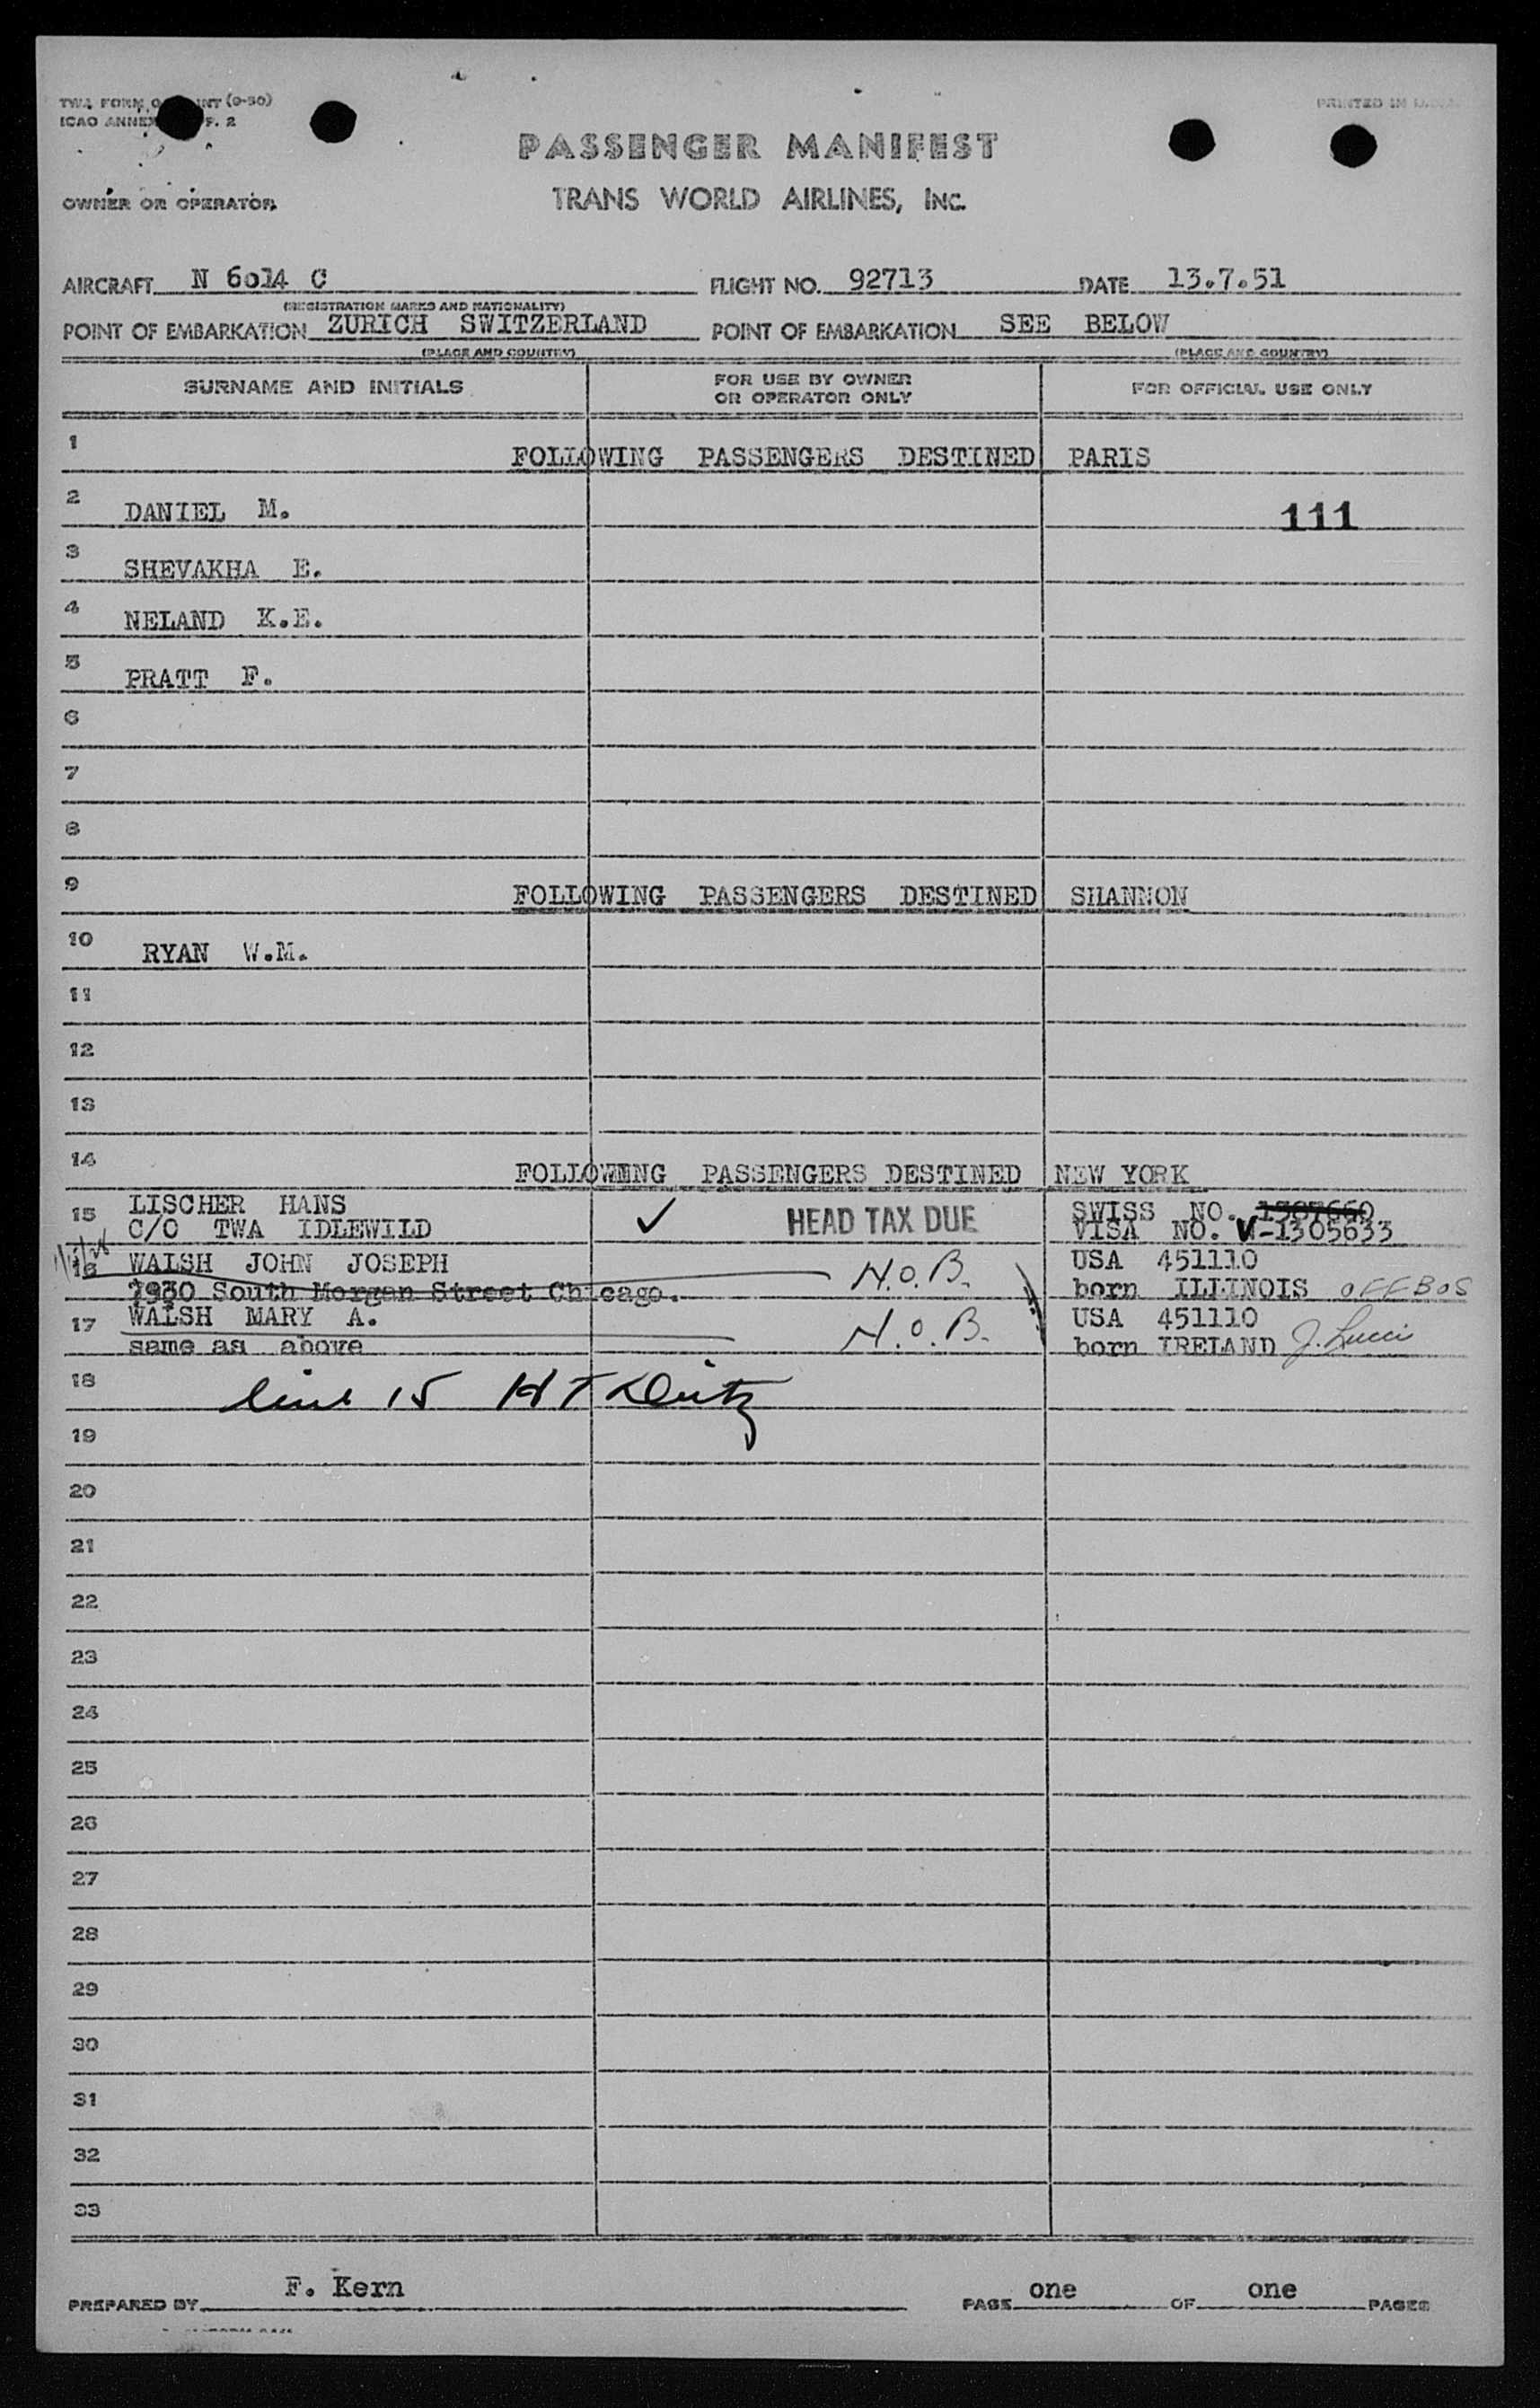 TWA FORM O INT (9-50)
ICAO ANNEX F. 2
PRINTED IN
PASSENGER MANIFEST
OWNER OR OPERATOR
TRANS WORLD AIRLINES, INC.
AIRCRAFT N 6014 C FLIGHT NO. 92713 DATE 13.7.51
(REGISTRATION MARKS AND NATIONALITY)
POINT OF EMBARKATION ZURICH SWITZERLAND POINT OF EMBARKATION SEE BELOW
(PLACE AND COUNTRY) (PLACE AND COUNTRY)
SURNAME AND INITIALS FOR USE BY OWNER OR OPERATOR ONLY FOR OFFICIAL USE ONLY
1 FOLLOWING PASSENGERS DESTINED PARIS
2 DANIEL M. 111
3 SHEVAKHA E.
4 NELAND K.E.
5 PRATT F.
6
7
8
9 FOLLOWING PASSENGERS DESTINED SHANNON
10 RYAN W.M.
11
12
13
14 FOLLOWING PASSENGERS DESTINED NEW YORK
15 LISCHER HANS ✓ HEAD TAX DUE SWISS NO. 1307660
C/O TWA IDLEWILD VISA NO. V-1305633
16 WALSH JOHN JOSEPH N.O.B. USA 451110
South Morgan Street Chicago. born ILLINOIS OFF BOS
17 WALSH MARY A. N.O.B. USA 451110
same as above born IRELAND J. Lucci
18 line 15 HT
19
20
21
22
23
24
25
26
27
28
29
30
31
32
33
PREPARED BY F. Kern PAGE one OF one PAGES